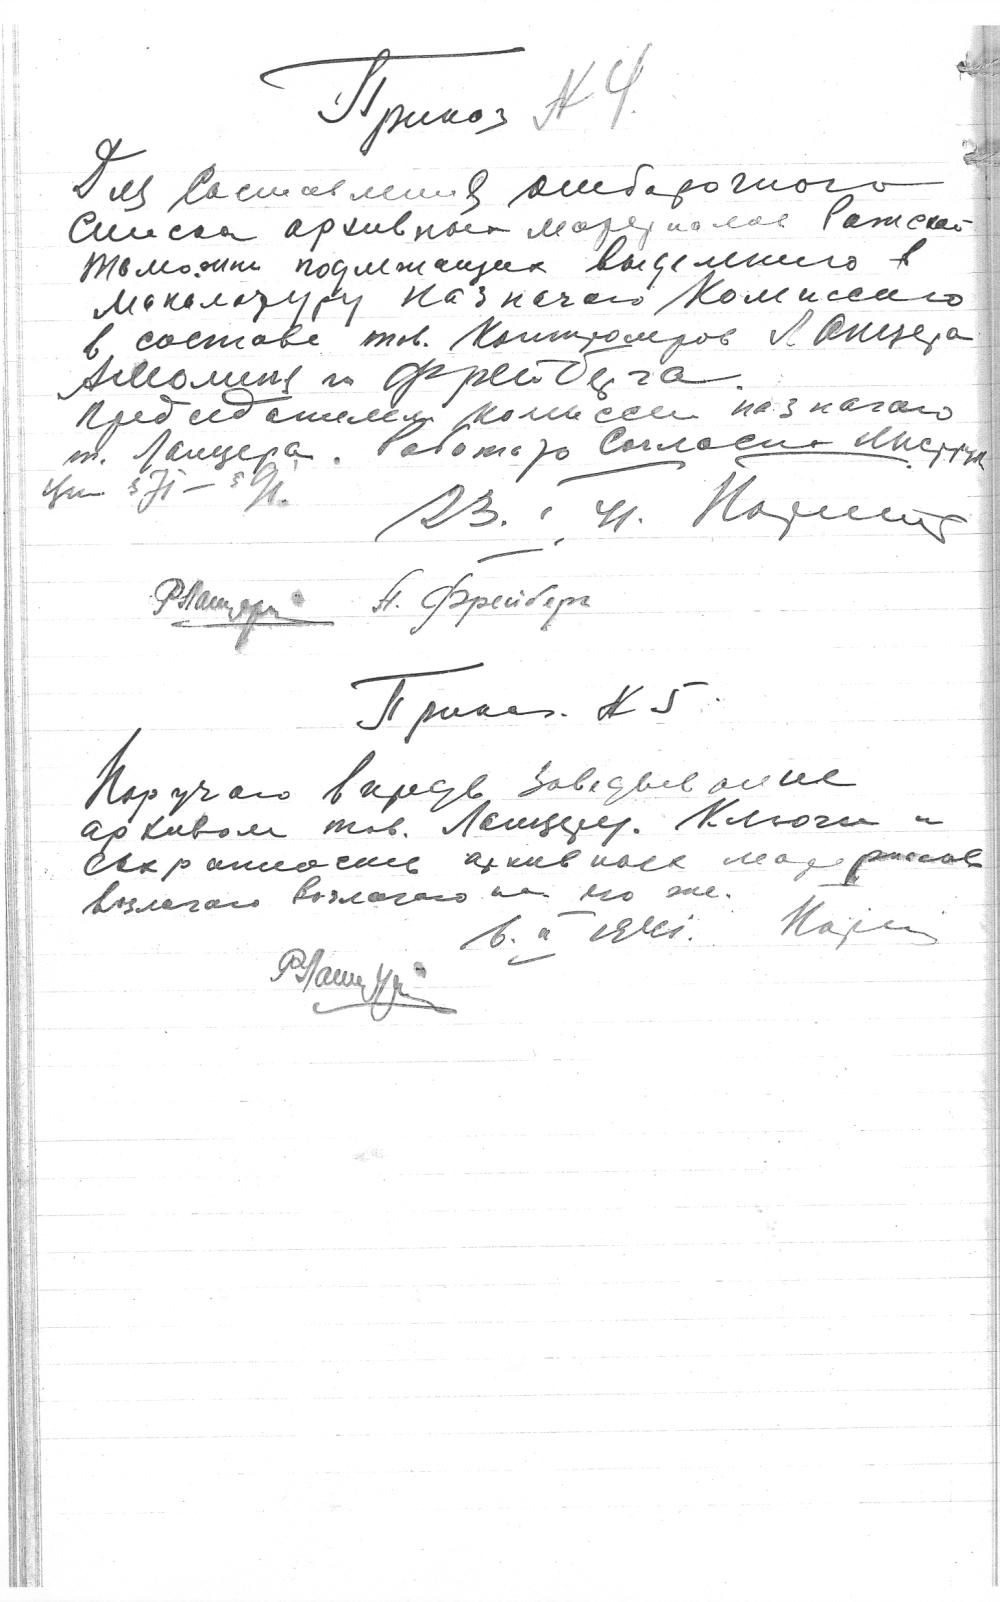 Приказ № 4.
Для Составления отборочного
списка архивных материалов Рижской
таможни подлежащих выделению в
макалатуру назначаю Комиссию
в составе тов. Контролеров Ланцера
Амолиня и Фрейберга.
Председателем комиссии назначаю
т. Ланцера. Работать Согласно Инструк
ции §
23. I 41.
Р Ланцерс А. Фрейберг
Приказ. № 5.
Поручаю впредь заведывание
архивом тов. Ланцеру. Ключи и
сохранность архивных материалов
возлагаю возлагаю на его же.
6. II 1941.
Р Ланцерс